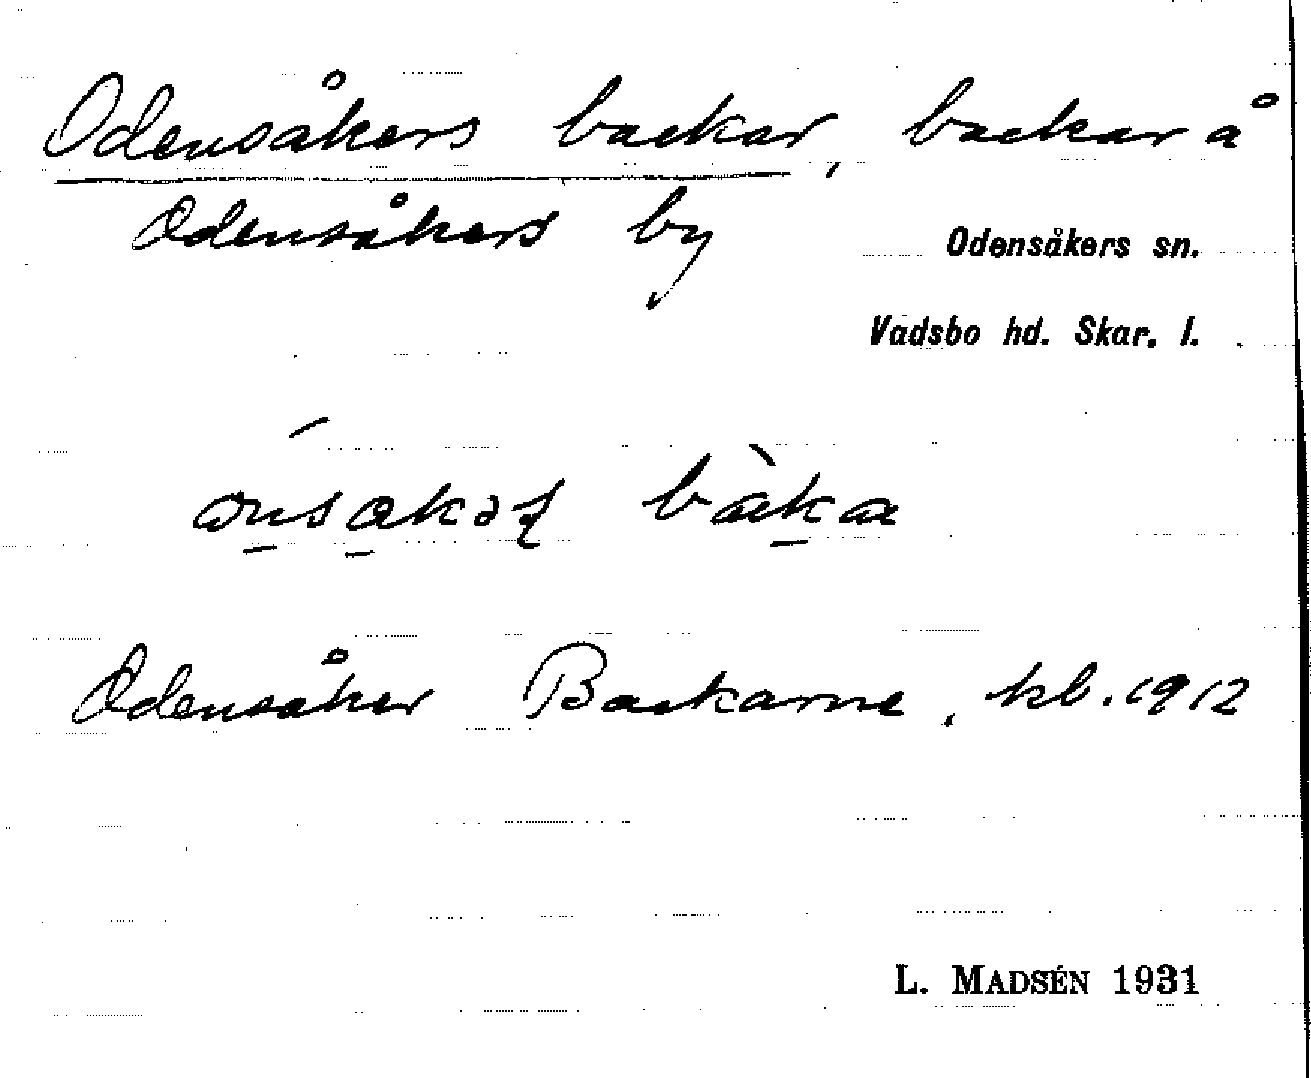 Odensåkers backar, backar å
Odensåkers by
Odensåkers sn.
Vadsbo hd. Skar. l.
bàka
Odensåker Backarne, kb. 1912
L. MADSÉN 1931